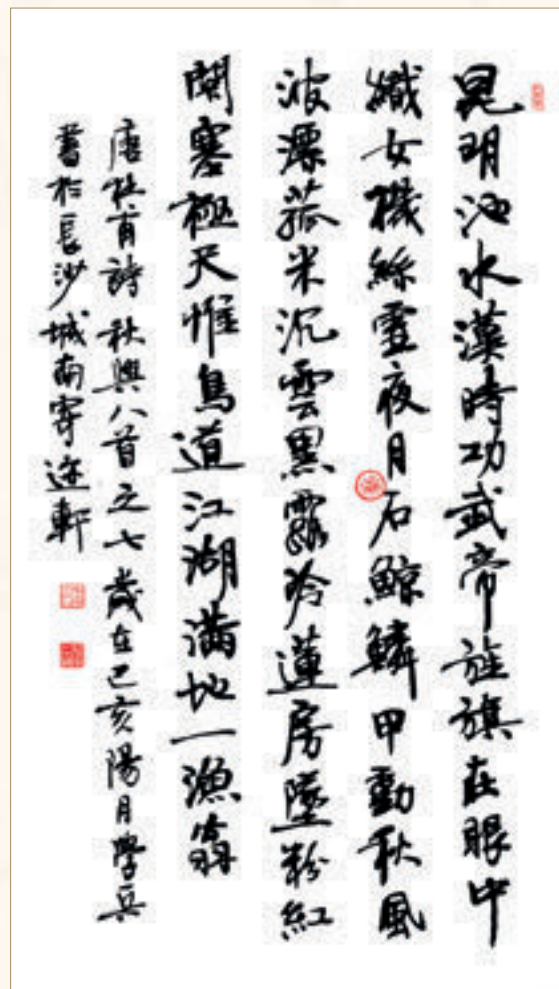 昆明池水漢時功武帝旌旗在眼中
織女機絲虛夜月石鯨鱗甲動秋風
波漂菰米沉雲黑露冷蓮房墜粉紅
關塞極天惟鳥道江湖滿地一漁翁
唐杜甫詩 秋興八首之七 歲在己亥陽月學兵
書於長沙城南寄迹軒